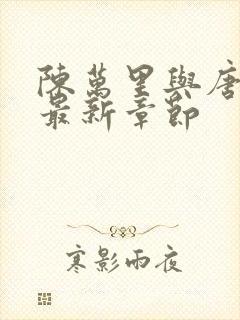 陳萬里與唐
最新章節
寒影雨夜